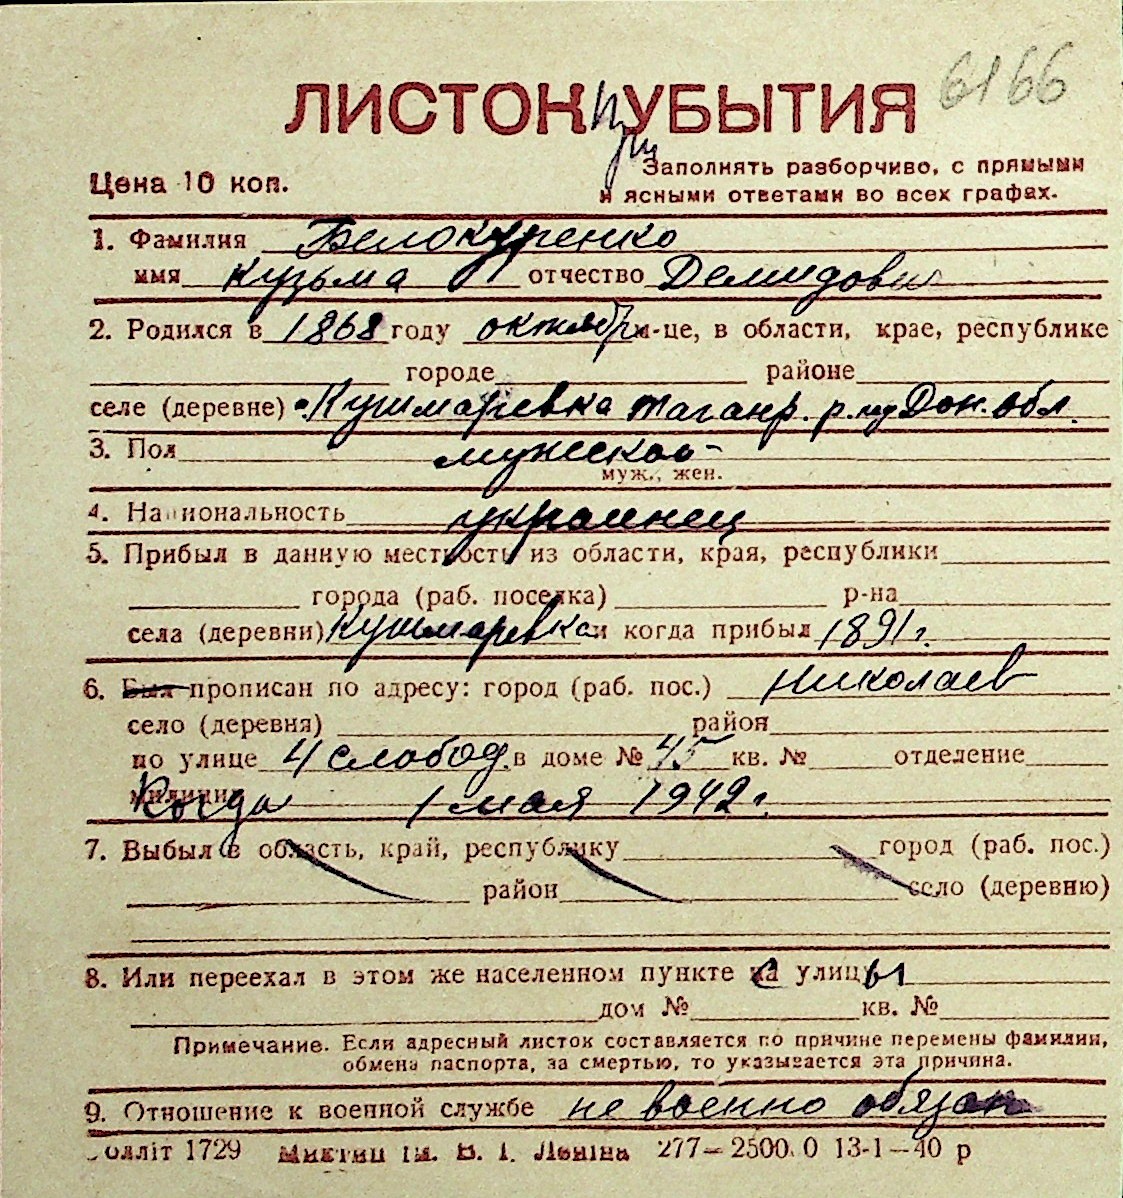 6166
ЛИСТОК при УБЫТИЯ
Цена 10 коп.
Заполнять разборчиво, с прямыми
и ясными ответами во всех графах.
1. Фамилия Белокуренко
имя Кузьма отчество Демидович
2. Родился в 1868 году октябрь м-це, в области, крае, республике
городе районе
селе (деревне) Кушмаревка таганр. р. Дон. обл.
3. Пол мужской
муж., жен.
4. Национальность украинец
5. Прибыл в данную местность из области, края, республики
города (раб. поселка) р-на
села (деревни) Кушмаревка и когда прибыл 1891 г.
6. Был прописан по адресу: город (раб. пос.) Николаев
село (деревня) район
по улице 4 слобод. в доме № 45 кв. № отделение
милиции Когда 1 мая 1942 г.
7. Выбыл в область, край, республику город (раб. пос.)
район село (деревню)
8. Или переехал в этом же населенном пункте с улицы
дом № кв. №
Примечание. Если адресный листок составляется по причине перемены фамилии,
обмена паспорта, за смертью, то указывается эта причина.
9. Отношение к военной службе не военно обязан
олліт 1729 ім. В. І. Леніна 277—2500.0 13-1—40 р